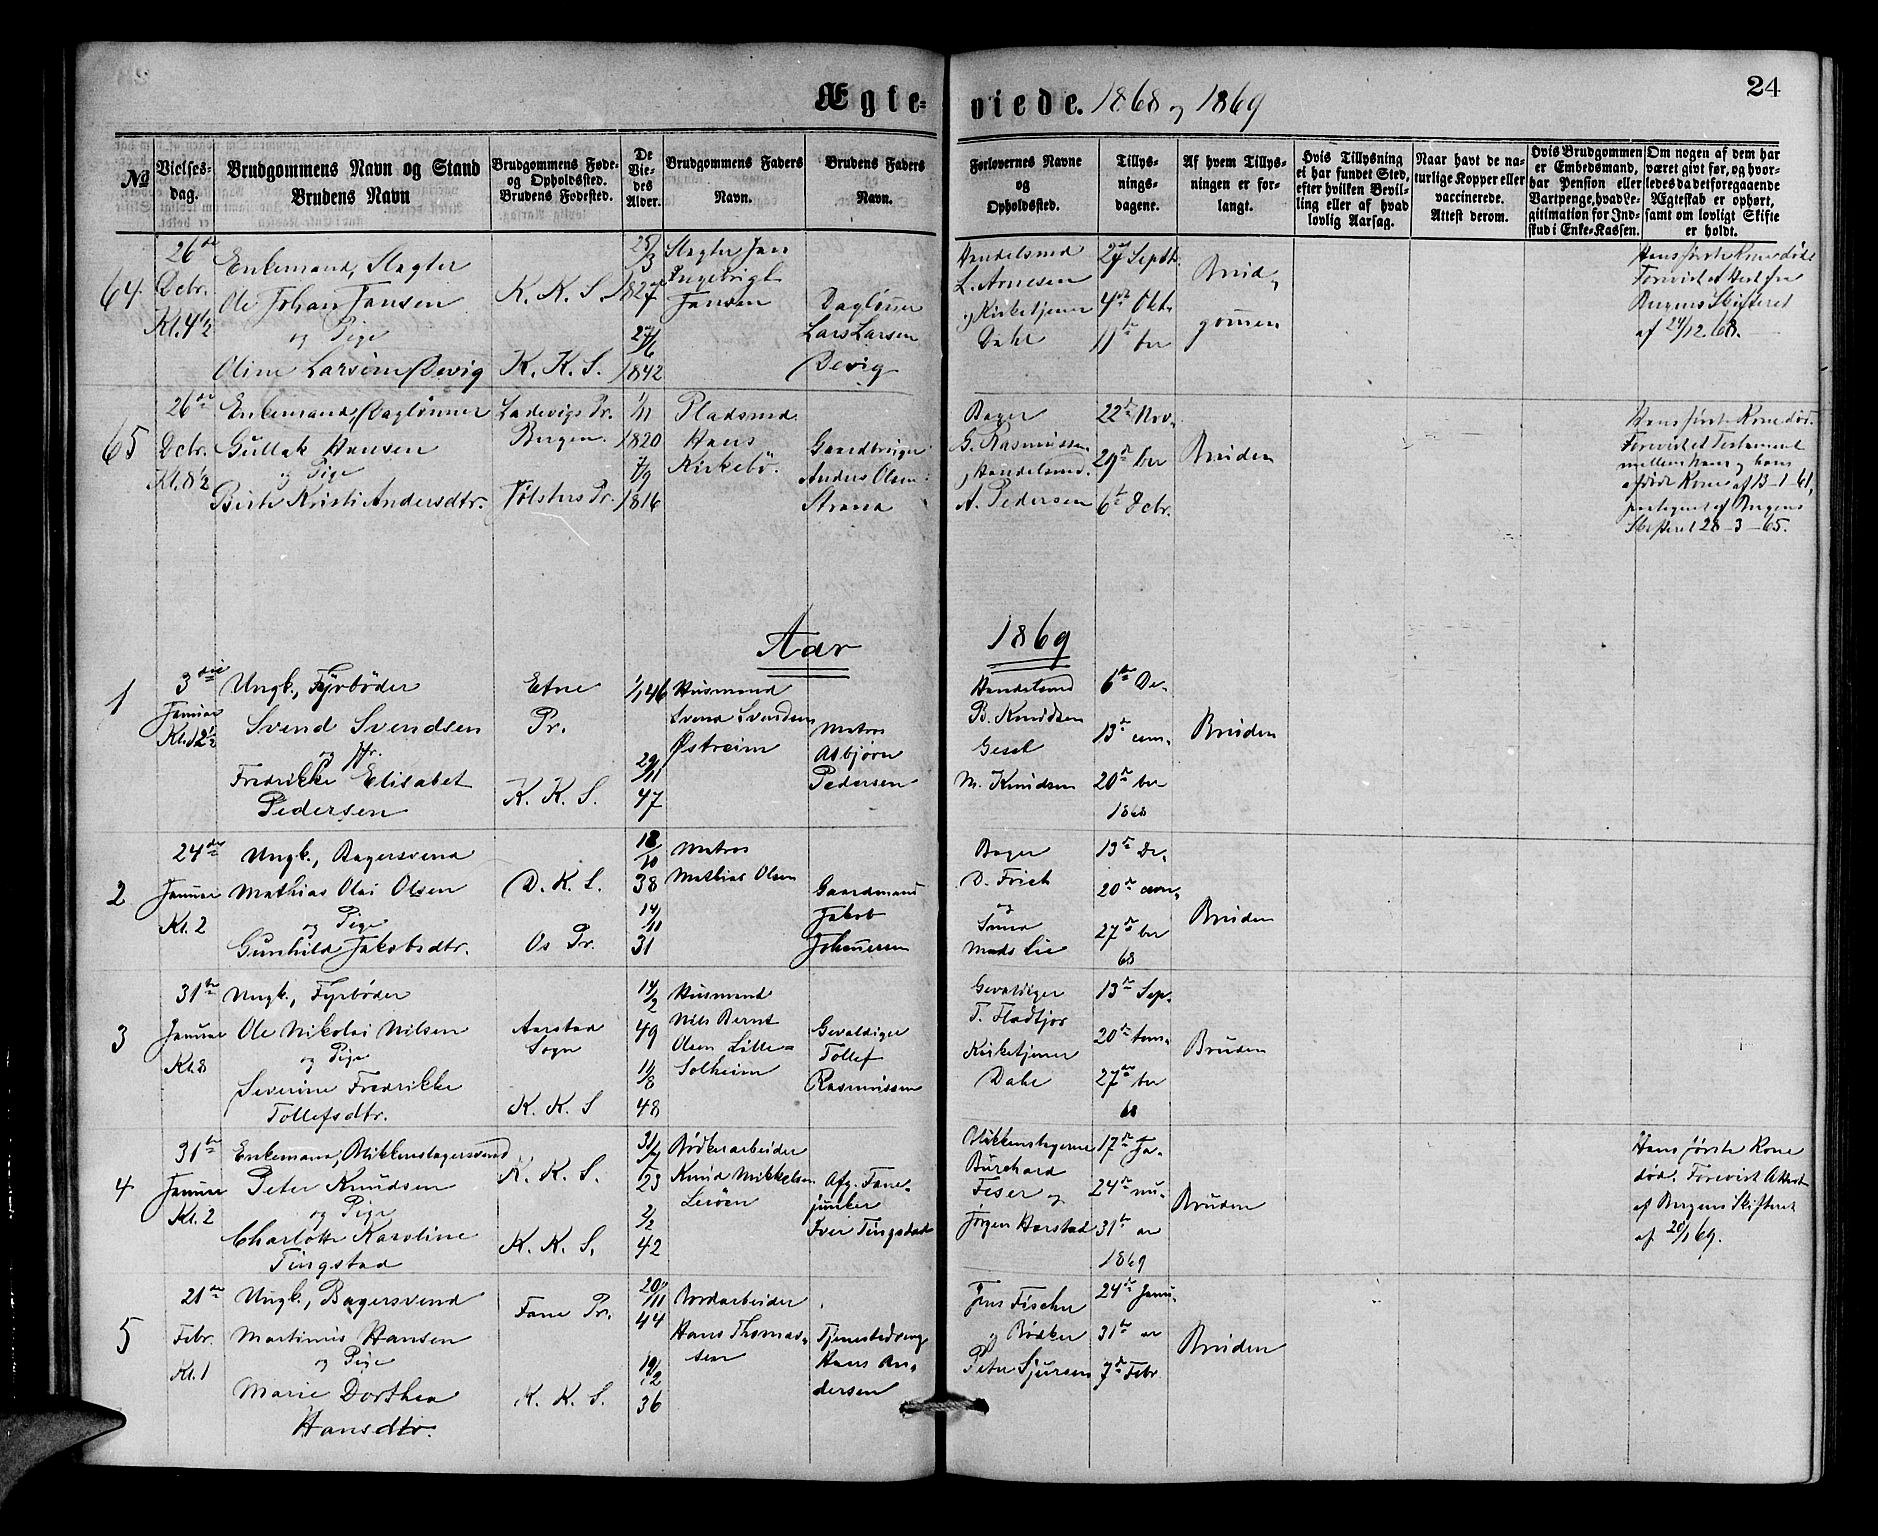 24
Ægte-viede. 1868 og 1869
№
Vielses-
dag.
Brudgommens Navn og Stand
Brudens Navn
Brudgommens Føde-
og Opholdssted.
Brudens Fødested.
De
Vie-
des
Alder.
Brudgommens Faders
Navn.
Brudens Faders
Navn.
Forlovernes Navne
og
Opholdssted.
Tillys-
nings-
dagene.
Af hvem Tillys-
ningen er for-
langt.
Hvis Tillysning
ei har fundet Sted,
efter hvilken Bevil-
ling eller af hvad
lovlig Aarsag.
Naar havt de na-
turlige Kopper eller
vaccinerede.
Attest derom.
Hvis Brudgommen
er Embedsmand,
har Pension eller
Vartpenge, hvad Le-
gitimation for Ind-
skud i Enke-Kassen.
Om nogen af dem har
været givt før, og hvor-
ledes da det foregaaende
Ægteskab er ophørt,
samt om lovligt Skifte
er holdt.
64.
26de
Dcbr.
Kl. 4½
Enkemand, Slagter
Ole Johan Jansen
og Pige
Oline Larsine Devig
K. K. S.
K. K. S.
25/3
1827
27/6
1842
Slagter Jan
Ingebrigt
Jansen
Daglønner
Lars Larsen
Devig
Handelsmd
L. Arnesen
og Kirketjener
Dahl
27 Septb.
4de Okt.
11te ber
Brud-
gomen
Hans første Kone død.
Forevist Attest fra
Bergens Skifteret
af 24/12 68.
65
26de
Dcbr.
Kl. 8½
Enkemand, Daglønner
Gullak Hansen
og Pige
Birte Kristi Andersdtr.
Ladevigs Pr.
Bergen.
Jølsters Pr.
1/11
1820
7/9
1816
Pladsmd.
Hans
Kirkebö.
Gaardbruger
Anders Olsen
Strand
Bager
G. Rasmussen
og Handelsmd.
A. Pedersen
22de Nov.
29de ber
6te Dcbr.
Bruden
Hans første Kone død.
Forevist Testament
mellem ham og hans
afdøde Kone af 13-1-61,
paategnet af Bergens
Skifteret 28-3-65.
Aar 1869
1
3die
Januar
Kl. 12½
Ungk., Fyrbøder
Svend Svendsen
og Pr.
Fredrikke Elisabet
Pedersen
Etne
Pr.
K. K. S.
1/1 46
29/11
47
Husmand
Svend Svendsen
Østreim
Matros
Asbjørn
Pedersen
Handelsmd
B. Knudsen
Gesel
M. Knudsen
6te De-
13de cem-
20de ber
1868
Bruden
2
24de
Januar
Kl. 2
Ungk., Bagersvend
Mathias Olai Olsen
og Pige
Gunhild Jakobsdtr.
D. K. S.
Os Pr.
18/10
38
14/11
31
Matros
Mathias Olsen
Gaardmand
Jakob
Johannesen
Bager
D. Frich
og
Smed
Mads Lie
13de De-
20de cem-
27de ber
68
Bruden
3
31te
Januar
Kl. 8
Ungk., Fyrbøder
Ole Nikolai Nilsen
og Pige
Severine Fredrikke
Tollefsdtr.
Aarstad
Sogn
K. K. S
14/2
49
11/8
48
Husmand
Nils Bernt
Olsen Lille-
Solheim
Gevaldiger
Tollef
Rasmussen
Gevaldiger
T. Fladtjor
Kirketjener
Dahl
13de Sep-
20de tem-
27de ber
68
Bruden
4
31te
Januar
Kl. 2
Enkemand, Blikkenslagersvend
Peter Knudsen
og Pige
Charlotte Karoline
Tingstad
K. K. S.
K. K. S.
31/7
23
2/2
42
Bødkerarbeider
Knud Mikkelsen
Leröen
Afg. Fane-
junker
Iver Tingstad
Blikkenslagerne
Burchard
Feser og
Jørgen Harstad
17de Ja-
24de nu-
31te ar
1869
Bruden
Hans første Kone
død. Forevist Attest
af Bergens Skifteret
af 20/1 69.
5
21de
Febr.
Kl. 1
Ungk., Bagersvend
Martinus Hansen
og Pige
Marie Dorthea
Hansdtr.
Fane Pr.
K. K. S.
20/11
44
19/2
36
Jordarbeider
Hans Thomas-
sen
Tjenestedreng
Hans An-
dersen
Jens Fischer
og Bødker
Peter Sjursen
24de Janu-
31te ar
7de Febr
Bruden